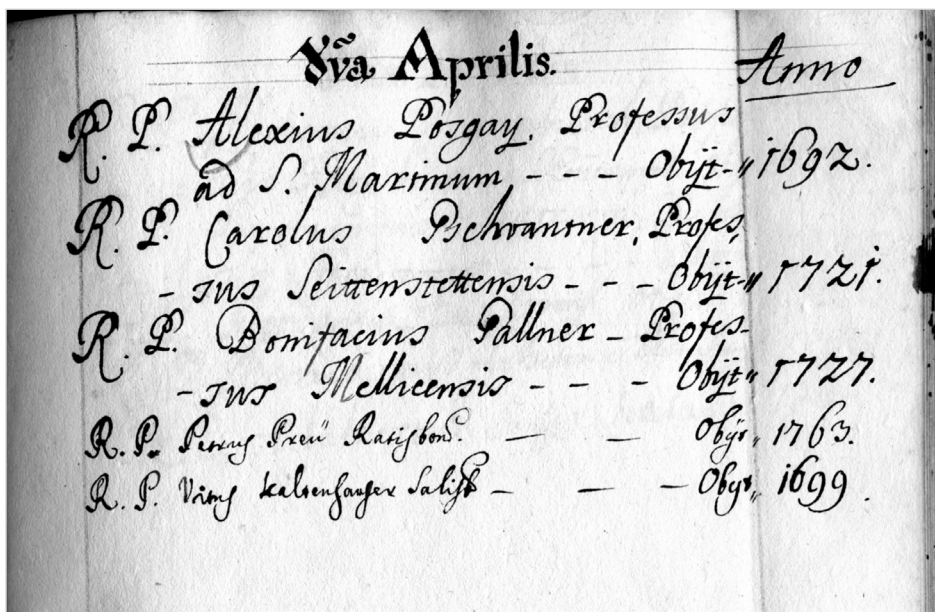 8va Aprilis. Anno
R. P. Alexius Pósgaÿ. Professus
ad S. Martinum, - - - Obÿt - „ 1692.
R. P. Carolus Pschvantner, Profes,
- sus Seittenstettensis - - - Obÿt - „ 1721.
R. P. Bonifacius Pallner - Profes-
- sus Mellicensis - - - Obÿt „ 1727.
R. P. Petrus Preü Ratisbon. — — Obÿt „ 1763.
R. P. Vitus Kaltenhauser Salisb — — — Obyt „ 1699.